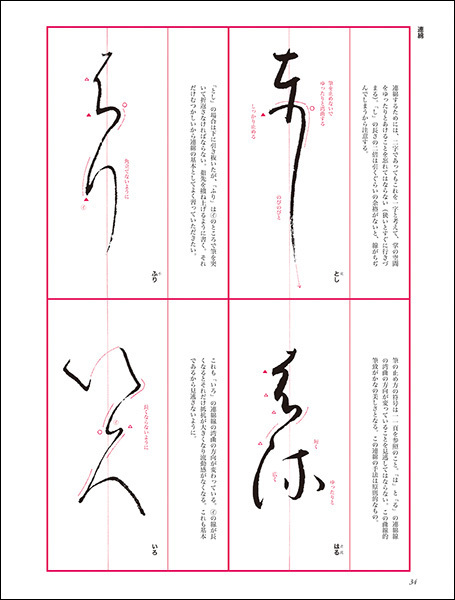 連綿
連綿するためには、二字であってもこれを一字と考えて、掌の空間
をゆったりとあけることを忘れてはならない（狭いとすぐに行きづ
まる）。「し」の長さの二倍は引くぐらいの余裕がないと、線がちぢ
んでしまうから注意する。
とし
筆を止めないで
ゆったりと湾曲する
しっかり止める
のびのびと
「とし」の場合は下に引き抜いたが、「ふり」は㋑のところで筆を突
いて折返さなければならない。指先を撥ね上げるように書く。それ
だけむつかしいから連綿の基本としてよく習っていただきたい。
ふり
角立てないように
筆の止め方の符号は一一頁を参照のこと。「は」と「る」の連綿線
の湾曲の方向が変っていることを見逃してはならない。この曲線的
筆致がかなの美しさとなる。この連綿の手法は原則的なもの。
はる
ゆったりと
短く
広く
これも「いろ」の連綿線の湾曲の方向が変わっている。㋑の線が長
くなるとそれだけ抵抗が大きくなり流動感がなくなる。これも基本
であるから見逃さないように。
いろ
長くならないように
34